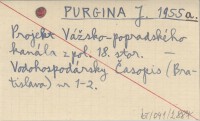 PURGINA J., 1955a.
Projekt Vážsko-popradského
kanála z pol. 18. stor. —
Vodohospodársky Časopis (Bra-
tislava) nr 1-2.